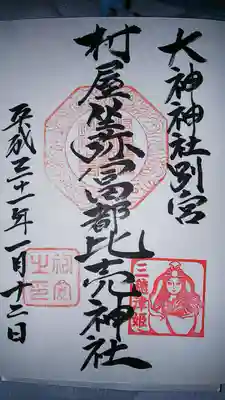 大神神社別宮
村屋坐弥冨都比売神社
平成三十一年一月十二日
三穂津姫